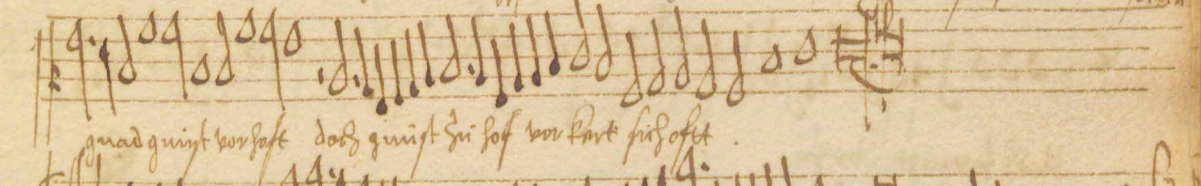 gnad gunst vorhoft doch gunst zu hof vor kert sich offt .